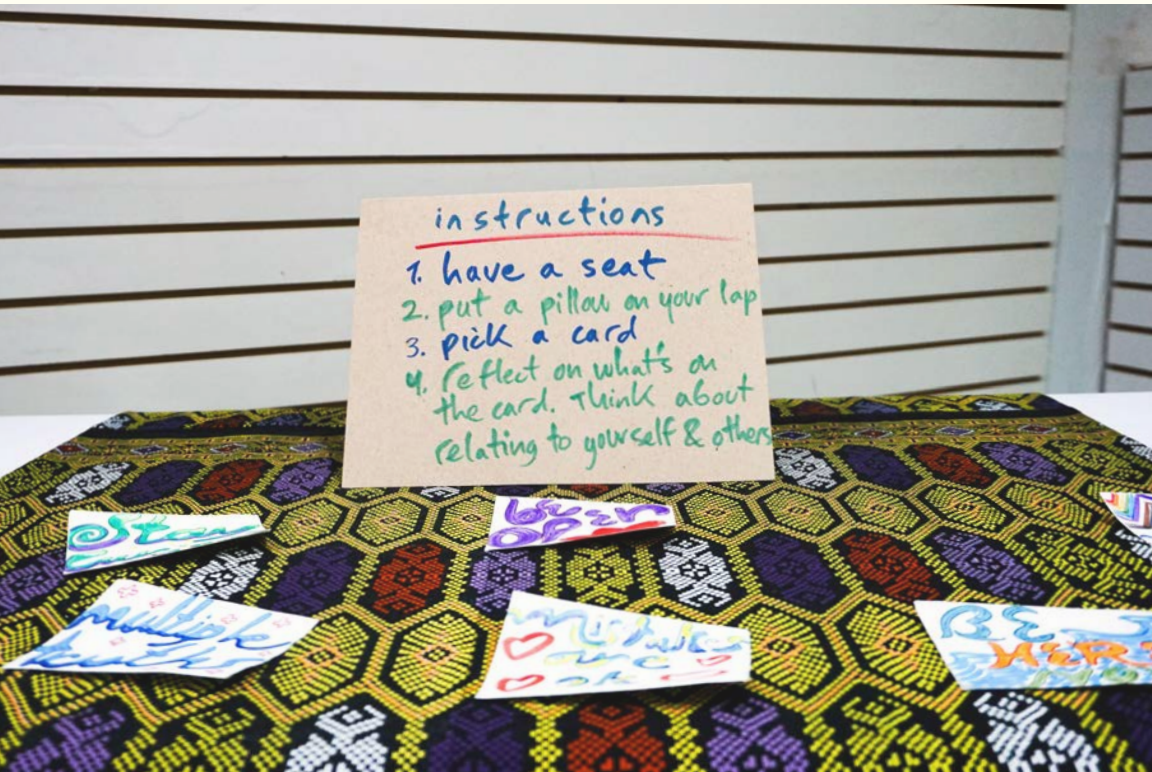 instructions
1. have a seat
2. put a pillow on your lap
3. pick a card
4. reflect on what's on
the card. Think about
relating to yourself & others
Stay
BE OPEN
multiple
truths
Mistakes
are
ok
BE
HERE